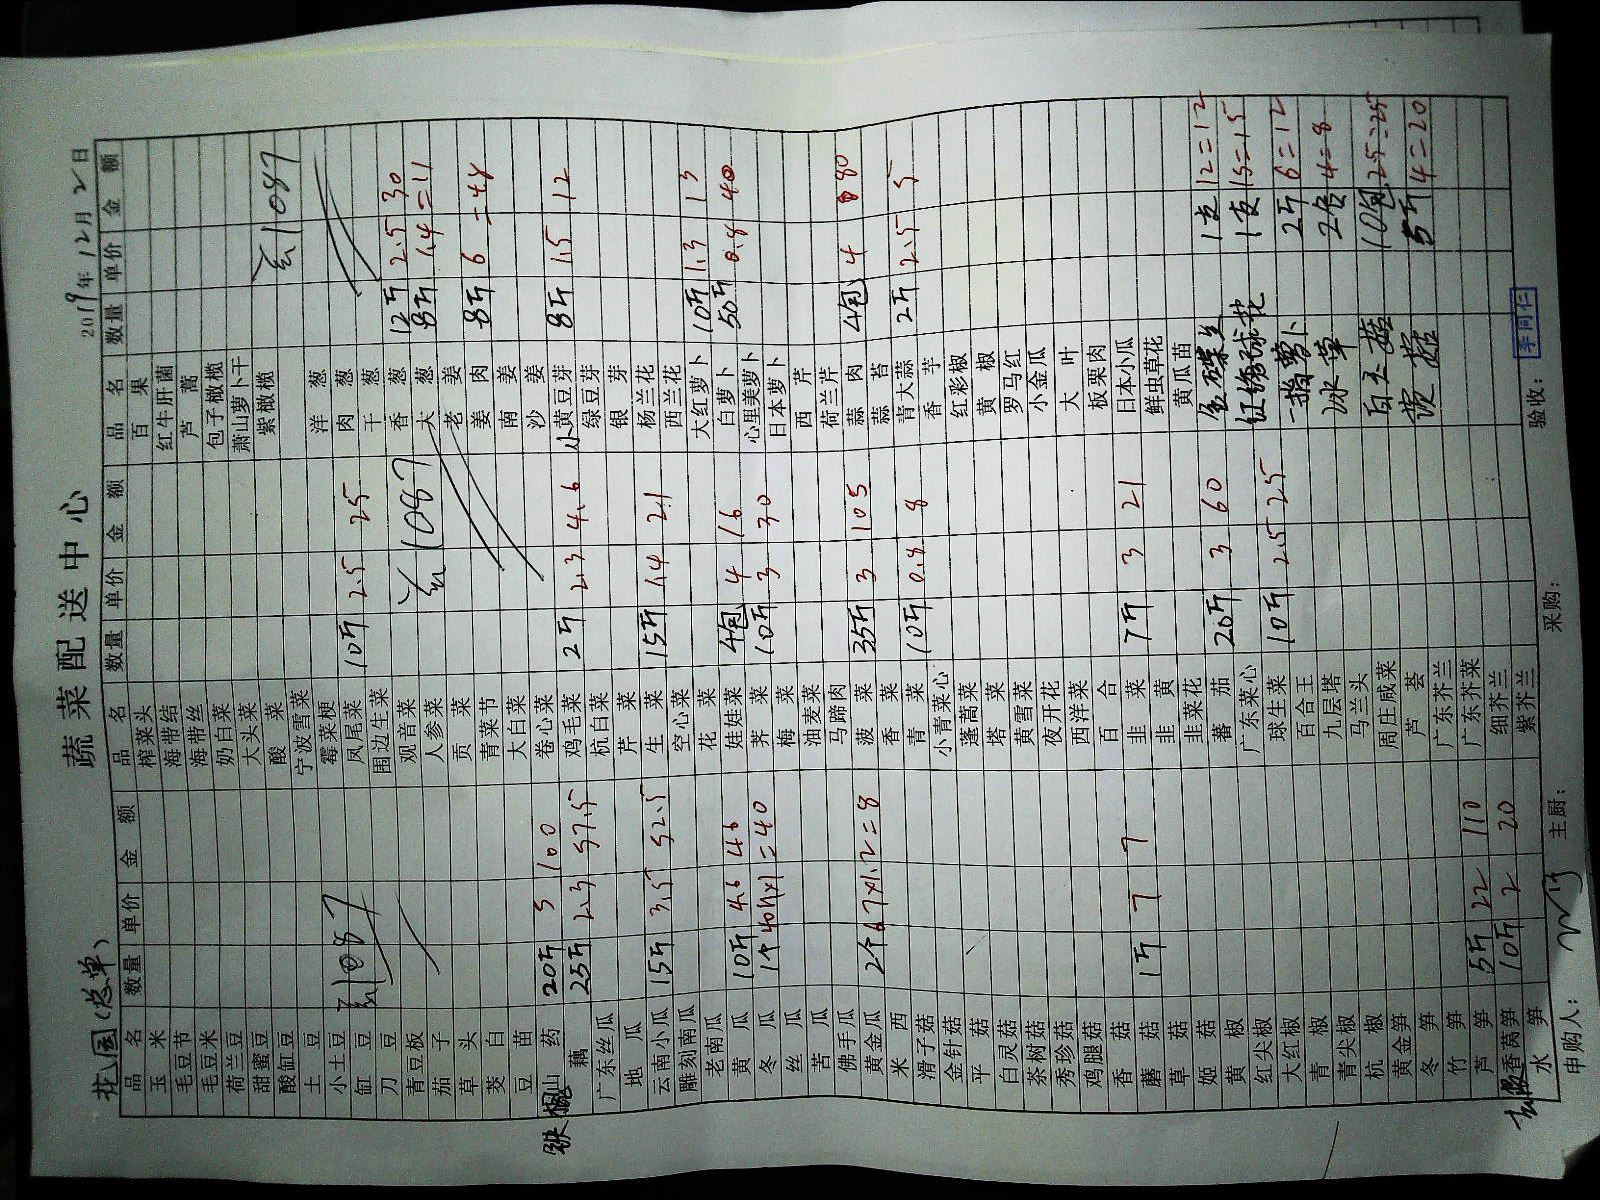 蔬菜配送中心
花园(总单)
2019年12月2日
品名 数量 单价 金额 品名 数量 单价 金额 品名 数量 单价 金额
玉米 榨菜头 百果
毛豆节 海带结 红牛肝菌
毛豆米 海带丝 芦蒿
荷兰豆 奶白菜 包子橄榄
甜蜜豆 大头菜 萧山萝卜干
酸缸豆 酸菜 紫橄榄
土豆 宁波雪菜
小土豆 霉菜梗 洋葱
缸豆 凤尾菜 10斤 2.5 25 肉葱
刀豆 围边生菜 干葱
青豆板 观音菜 香葱 12斤 2.5 30
茄子 人参菜 大葱 8斤 1.4=11
草头 贡菜 老姜
茭白 青菜节 姜肉 8斤 6=48
豆苗 大白菜 南姜
铁棍山药 20斤 5 100 卷心菜 沙姜
藕 25斤 2.3 57.5 鸡毛菜 2斤 2.3 4.6 小黄豆芽 8斤 1.5 12
广东丝瓜 杭白菜 绿豆芽
地瓜 芹菜 银芽
云南小瓜 15斤 3.5 52.5 生菜 15斤 1.4 21 杨兰花
雕刻南瓜 空心菜 西兰花
老南瓜 花菜 大红萝卜 10斤 1.3 13
黄瓜 10斤 4.6 46 娃娃菜 4包 4 16 白萝卜 50斤 0.8 40
冬瓜 1个40斤×1=40 荠菜 10斤 3 30 心里美萝卜
丝瓜 梅菜 日本萝卜
苦瓜 油麦菜 西芹
佛手瓜 马蹄肉 荷兰芹
黄金瓜 2个6.7×1.2=8 菠菜 35斤 3 105 蒜肉 4包 4 80
米西 香菜 蒜苔
滑子菇 青菜 10斤 0.8 8 青大蒜 2斤 2.5 5
金针菇 小青菜心 香芋
平菇 蓬蒿菜 红彩椒
白灵菇 塔菜 黄椒
茶树菇 黄雪菜 罗马红
秀珍菇 夜开花 小金瓜
鸡腿菇 西洋菜 大叶
香菇 百合 板栗肉
蘑菇 1斤 7 7 韭菜 7斤 3 21 日本小瓜
草菇 韭黄 鲜虫草花
姬菇 韭菜花 黄瓜苗
黄椒 蕃茄 20斤 3 60 1支 12=12
红尖椒 广东菜心 红绣球花 1支 15=15
大红椒 球生菜 10斤 2.5 25 一指萝卜 2斤 6=12
青椒 百合王 冰草 2盒 4=8
青尖椒 九层塔
杭椒 马兰头 白玉菇 10包 25=25
黄金笋 周庄咸菜 菇 5斤 4=20
冬笋 芦荟
竹笋 广东芥兰
芦笋 5斤 22 110 广东芥菜
香莴笋 10斤 2 20 细芥兰
水笋 紫芥兰
申购人: 主厨: 采购: 验收: 李同仁
1087
1087
1087